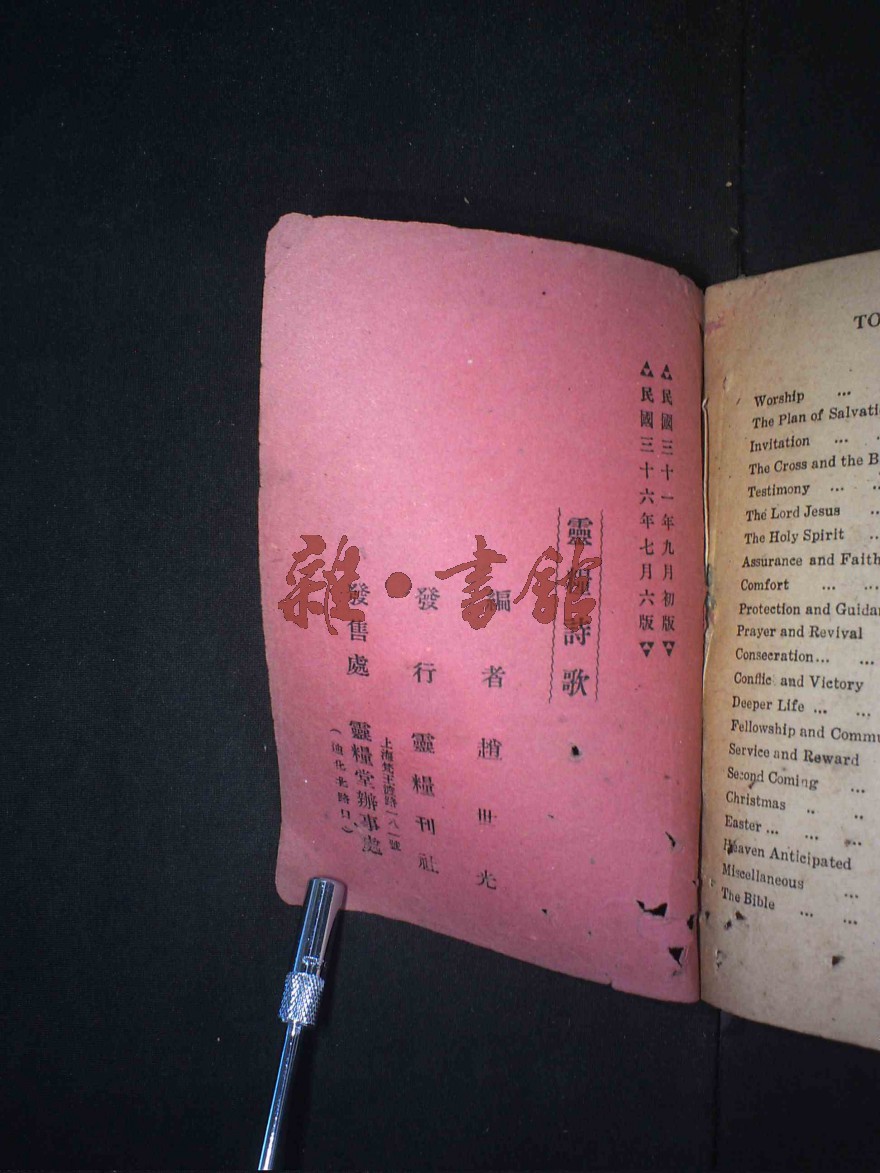 民國三十一年九月初版
民國三十六年七月六版
靈糧詩歌
編者 趙世光
發行 靈糧刊社
上海梵王渡路一八一號
發售處 靈糧堂辦事處
(迪化北路口)
雜·書館
TO
Worship ...
The Plan of Salvati
Invitation ...
The Cross and the B
Testimony ... ..
The Lord Jesus ..
The Holy Spirit ..
Assurance and Faith
Comfort ... ...
Protection and Guida
Prayer and Revival
Consecration... ...
Conflic and Victory
Deeper Life ... ...
Fellowship and Commu
Service and Reward
Second Coming ...
Christmas .. ..
Easter ... ... ...
Heaven Anticipated
Miscellaneous ...
The Bible ... ...